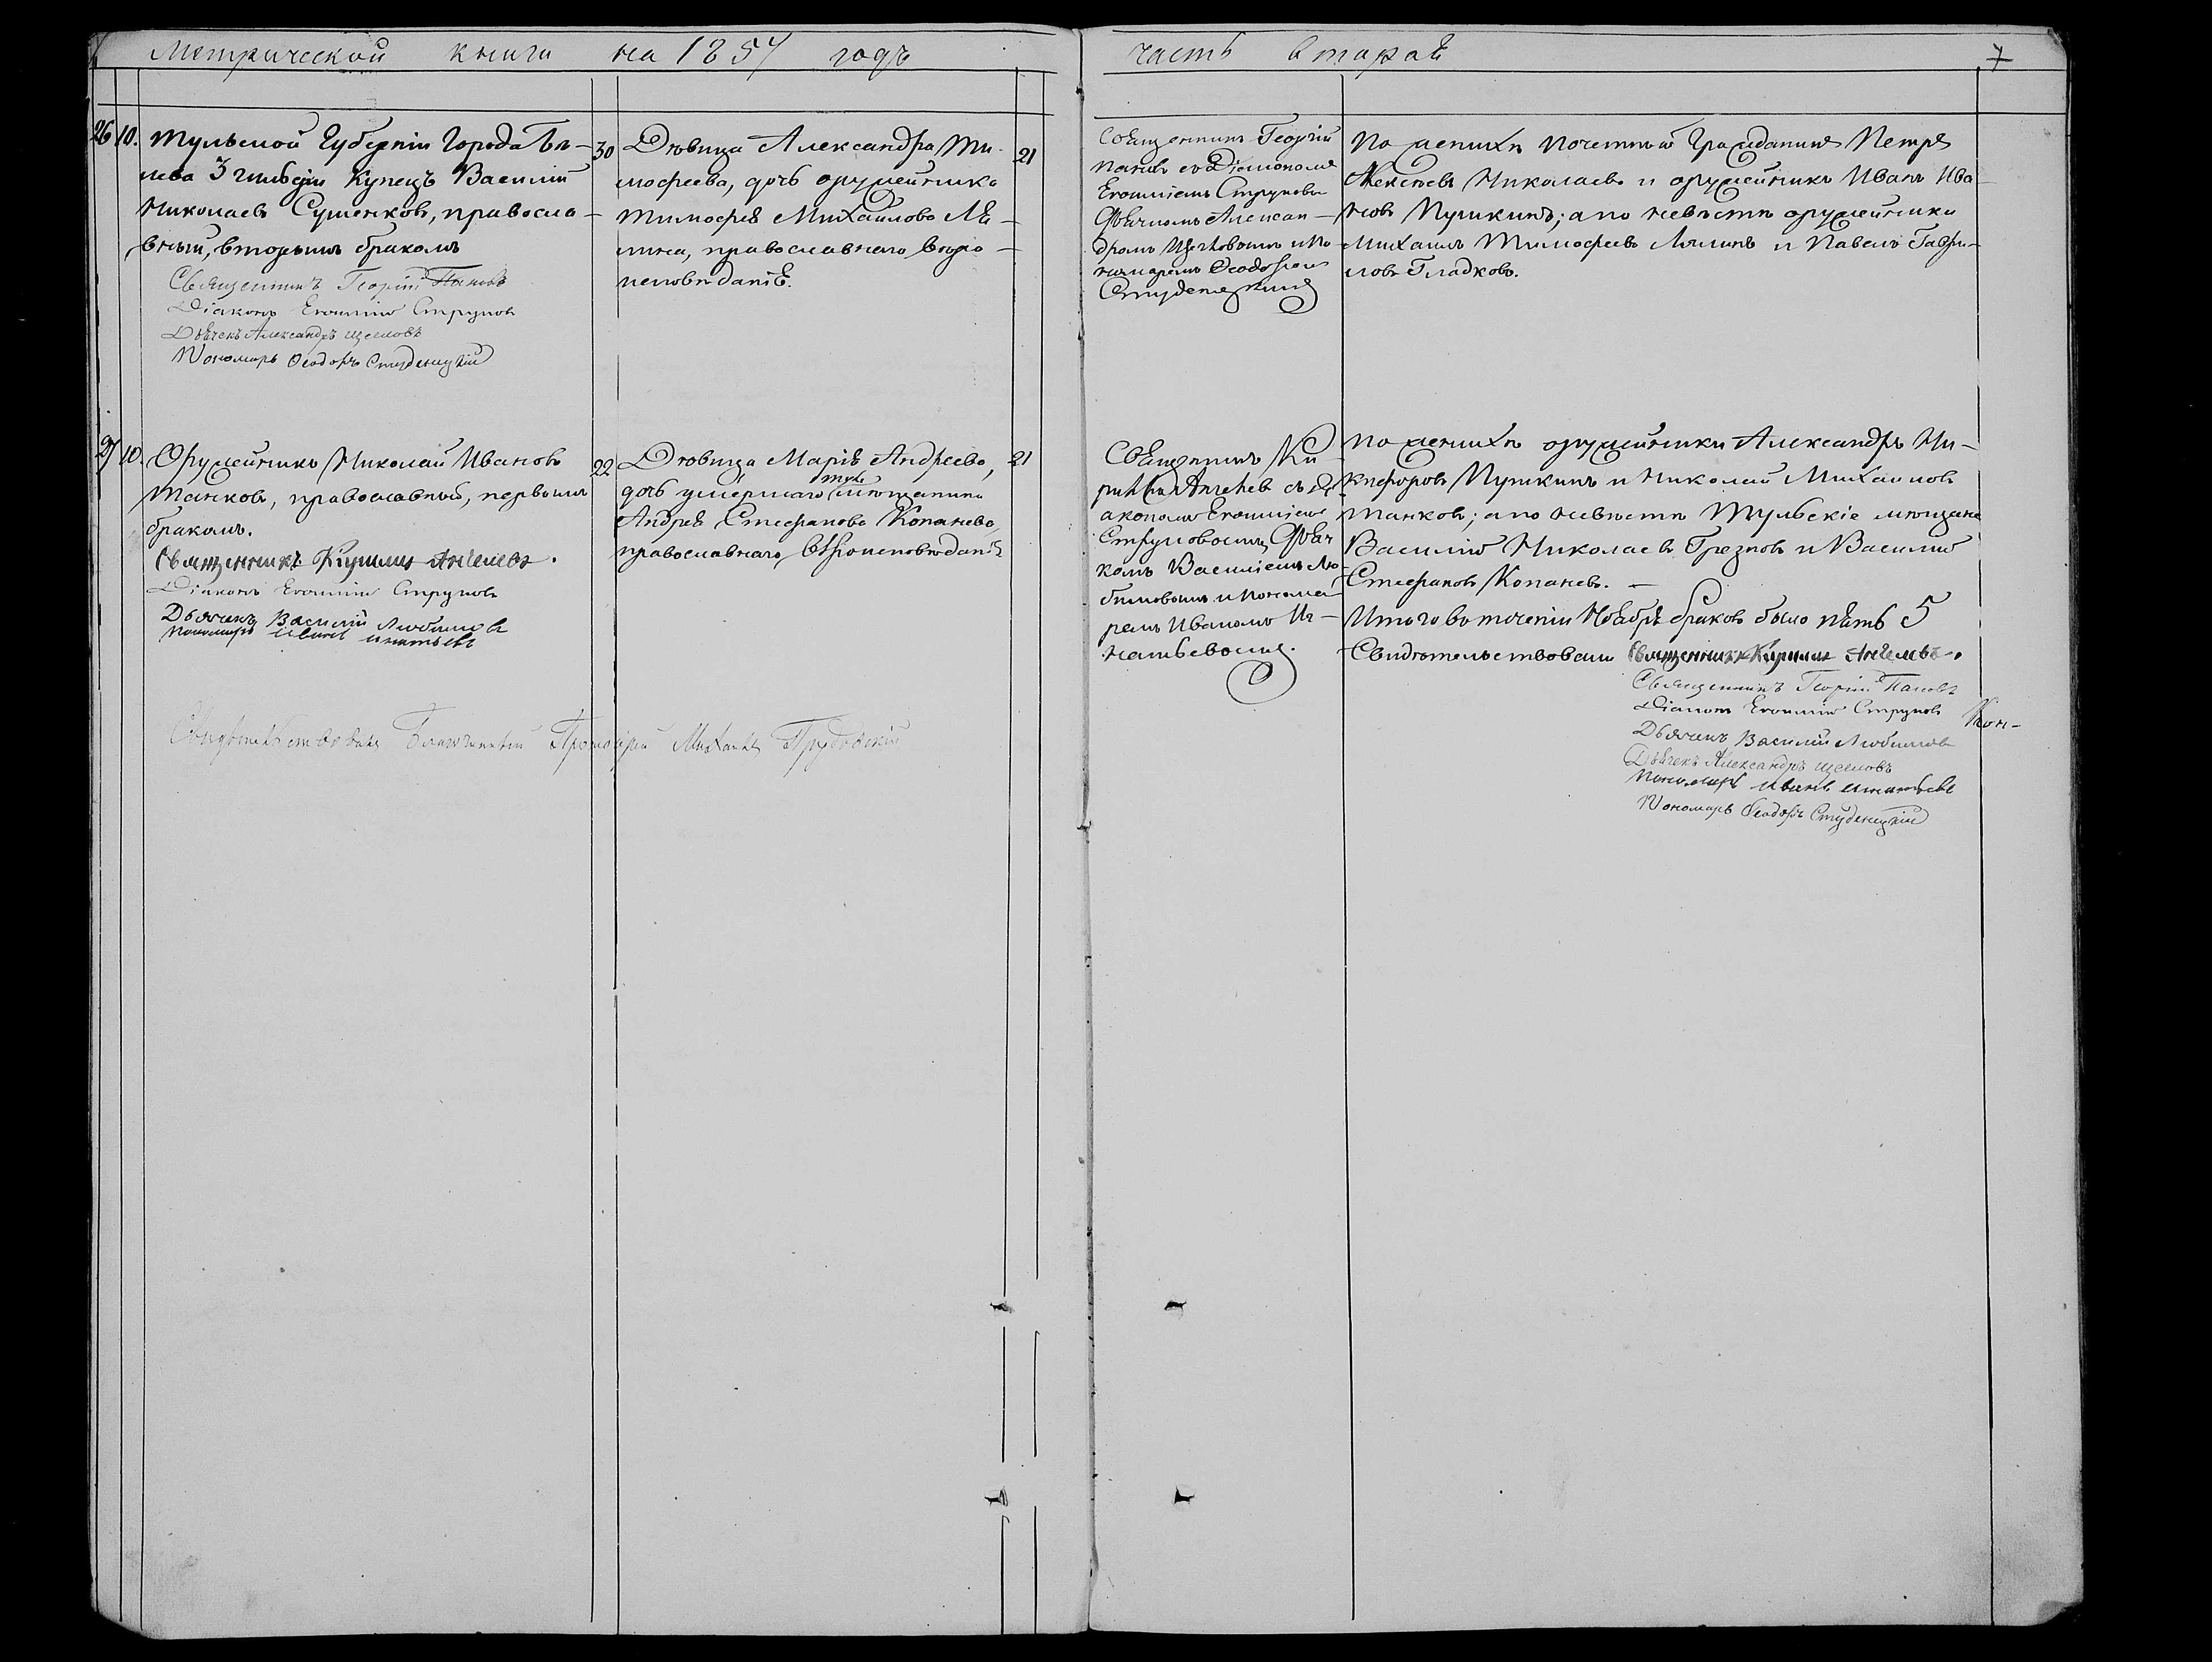 Метрической книги на 1857 годъ
часть вторая
26 10. Тульской Губерніи Города Бѣ-
лева 3 гильдіи Купецъ Василій
Николаевъ Сушенковъ, правосла-
вный, вторымъ бракомъ
Священникъ Георгій Пановъ
Діаконъ Евѳимій Струковъ
Дьячекъ Александръ Щегловъ
Пономарь Ѳеодоръ Студенецкій
30
Дѣвица Александра Ти-
мофеева, дочь оружейника
Тимофея Михайлова Ля-
лина, православнаго вѣро-
исповѣданія.
21
Священникъ Георгій
Пановъ съ Діакономъ
Евѳиміемъ Струковымъ
Дьячкомъ Алексан-
дромъ Щегловымъ и По-
номаремъ Ѳеодоромъ
Студенецкимъ
По женихѣ почетный Гражданинъ Петръ
Алексѣевъ Николаевъ и оружейникъ Иванъ Ива
новъ Пушкинъ; а по невѣстѣ оружейники
Михаилъ Тимофеевъ Лялинъ и Павелъ Гаври-
ловъ Гладковъ.
27 10. Оружейникъ Николай Ивановъ
Танковъ, православный, первымъ
бракомъ.
Священникъ Кириллъ Ангелевъ.
Діаконъ Евѳимій Струковъ
Дьячекъ Василій Любимовъ
Пономарь Иванъ Игнатьевъ
22
Дѣвица Марія Андреева,
дочь умершаго тул. мѣщанина
Андрея Стефанова Копанева,
православнаго вѣроисповѣданія
21
Священникъ Ки-
риллъ Ангелевъ съ Ді-
акономъ Евѳиміемъ
Струковымъ Дьяч
комъ Василіемъ Лю-
бимовымъ и Понома-
ремъ Иваномъ Иг-
натьевымъ.
По женихѣ оружейники Александръ Ни-
кифоровъ Пушкинъ и Николай Михаиловъ
Танковъ; а по невѣстѣ Тульскіе мѣщане
Василій Николаевъ Грезновъ и Василій
Стефановъ Копаневъ.
Итого въ теченіи Ноября браковъ было пять 5
Свидѣтельствовали Священникъ Кириллъ Ангелевъ.
Священникъ Георгій Пановъ
Діаконъ Евѳимій Струковъ
Дьячекъ Василій Любимовъ
Дьячекъ Александръ Щегловъ
Пономарь Иванъ Игнатьевъ
Пономарь Ѳеодоръ Студенецкій
Свидѣтельствовалъ Благочинный Протоіерей Михаилъ Трубовскій